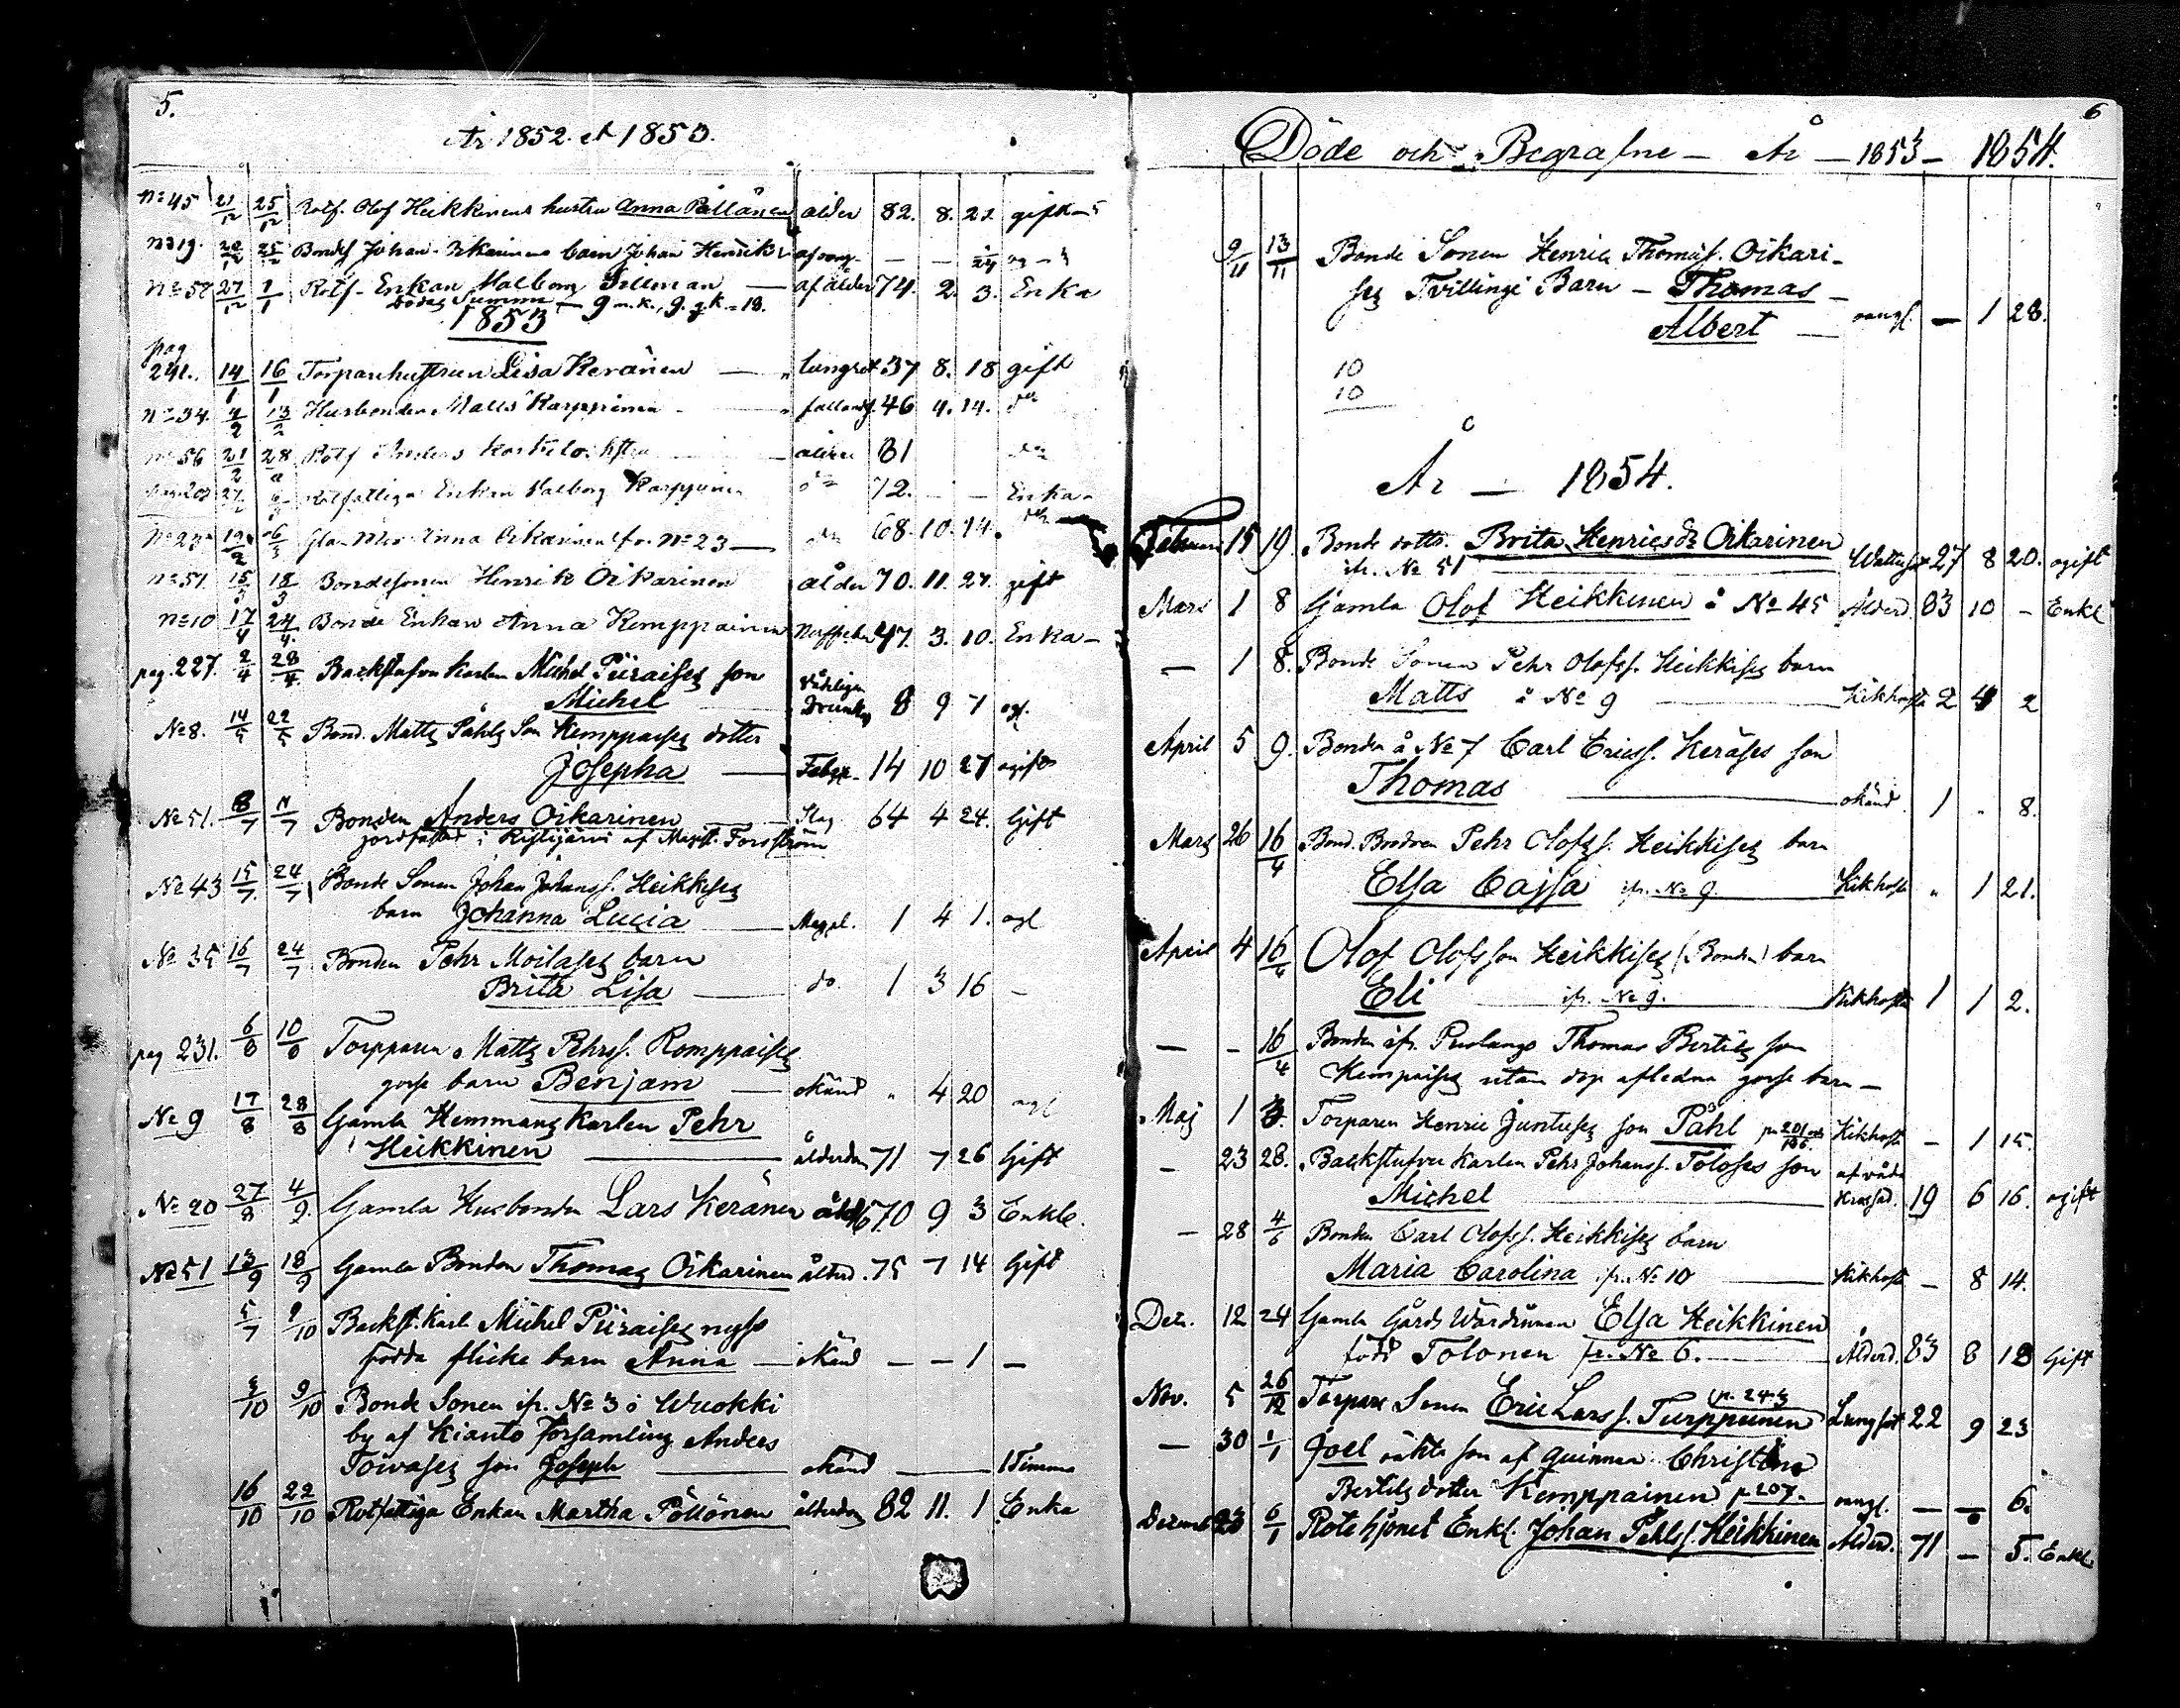 5.
År 1852. et 1853.
No 45 21/12 25/12 Rotf. Olof Heikkinens hustru Anna Pällänen ålder 82. 8. 21. gift
No 19. 20/12 25/12 Bondes Johan Oikarinens barn Johan Henrik
No 58 27/12 1/1 Rotf. Enkan Valborg af ålder 74. 2. 3. Enka
Dödas Summa — 9 m.k., 9. q.k. = 18.
1853
pag
241. 14/1 16/1 Torparehustrun Lisa Keränen — lungsot 37 8. 18 gift
No 34. 4/2 13/2 Husbonden Matts Karppinen — 46 4. 14. do
No 56 21/2 28/2 Rotf Anders ålder 81 do
Rotfattiga Enkan Valborg Karppinen do 72. — — Enka
No 23 Anna Oikarinen fr. No 23 — do 68. 10. 14. do
No 51. 15/3 18/3 Bondesonen Henrik Oikarinen ålder 70. 11. 27. gift
No 10 17/4 24/4. Bonde Enkan Anna Kemppainen 47. 3. 10. Enka
pag. 227. 2/4 28/4. Backstufvu Karlen Michel Piiraises son
Michel vådligen Drunkn 8 9 7 ogf.
No 8. 14/5 22/5 Bond. Matts Påhls Son Kemppaises dotter
Josepha — 14 10 27 ogift
No 51. 8/7 11/7 Bonden Anders Oikarinen Slag 64 4 24. Gift
jordfästad i Ristijärvi af Magist. Forsström
No 43 15/7 24/7 Bonde Sonen Johan Johanss. Heikkises
barn Johanna Lucia — Messl. 1 4 1. ogl
No 35 16/7 24/7 Bonden Pehr Moilases barn
Brita Lisa — do. 1 3 16 —
pag 231. 6/8 10/8 Torpparen Matts Pehrss. Romppaises
gosse barn Benjam — okänd " 4 20 ogl
No 9 17/8 28/8 Gamla Hemmans Karlen Pehr
Heikkinen — ålderdom 71 7 26 Gift
No 20 27/8 4/9. Gamla Husbonden Lars Keränen 70 9 3 Enkl.
No 51 13/9 18/9 Gamla Bonden Thomas Oikarinen ålderd. 75 7 14 Gift
5/7 9/10 Backst. Karl Michel Piiraises nyss
födda flicke barn Anna — okänd — — 1 —
3/10 9/10 Bonde Sonen ifr. No 3 i Wuokki
by af Kianto församling Anders
Toivases son Joseph — okänd — 1 Timma
16/10 22/10 Rotfattiga Enkan Martha Pöllönen ålderdom 82 11. 1 Enka
6
Döde och Begrafne — År — 1853 — 1854.
9/11 13/11 Bonde Sonen Henric Thomas. Oikari-
ses Tvillinge Barn — Thomas —
Albert — oangf. — 1 28.
10
10
År — 1854.
Februari 15 19. Bonde dottr. Brita Henricsdr Oikarinen
ifr. No 51 — Wattusot 27 8 20. ogift
Mars 1 8 Gamla Olof Heikkinen å No 45 Ålderd. 83 10 — Enkl
— 1 8. Bonde Sonen Pehr Olofss. Heikkises barn
Matts å No 9 — Kikhosta 2 4 2
April 5 9. Bonden å No 7 Carl Ericss. Keräses son
Thomas — okänd. 1 - 8.
Mars 26 16/4 Bond. Brodren Pehr Olofss. Heikkises barn
Elsa Cajsa ifr. No 9. — Kikhosta " 1 21.
April 4 16/4 Olof Olofsson Heikkises (Bonden) barn
Eli ifr. No 9. — Kikhosta 1 1 2.
— - 16/4 Bonden ifr. Puolango Thomas Bertils son
Kempaises utan dop afledna gosse barn —
Maj 1 Torparen Henric Juntuses son Påhl Kikhosta — 1 15.
— 23 28. Backstufvu Karlen Pehr Johanss. Toloses son
Michel — af våda 19 6 16. ogift
— 28 4/6 Bonden Carl Olofss. Heikkises barn
Maria Carolina ifr. No 10 — Kikhosta — 8 14.
Dec. 12 24 Gamla Gårds Wärdinnan Elsa Heikkinen
född Tolonen fr. No 6. — Ålderd. 83 8 18 Gift
Nov. 5 26/12 Torpare Sonen Eric Larss. Turppunen p. 243 Lungsot 22 9 23
— 30 1/1 Joel oäkta son af Quinnan Christina
Bertils dotter Kemppainen p 207. oangf. — — 6.
Decemb 23 6/1 Rotehjonet Enkl. Johan Pehlss. Heikkinen Ålderd. 71 — 5. Enkl